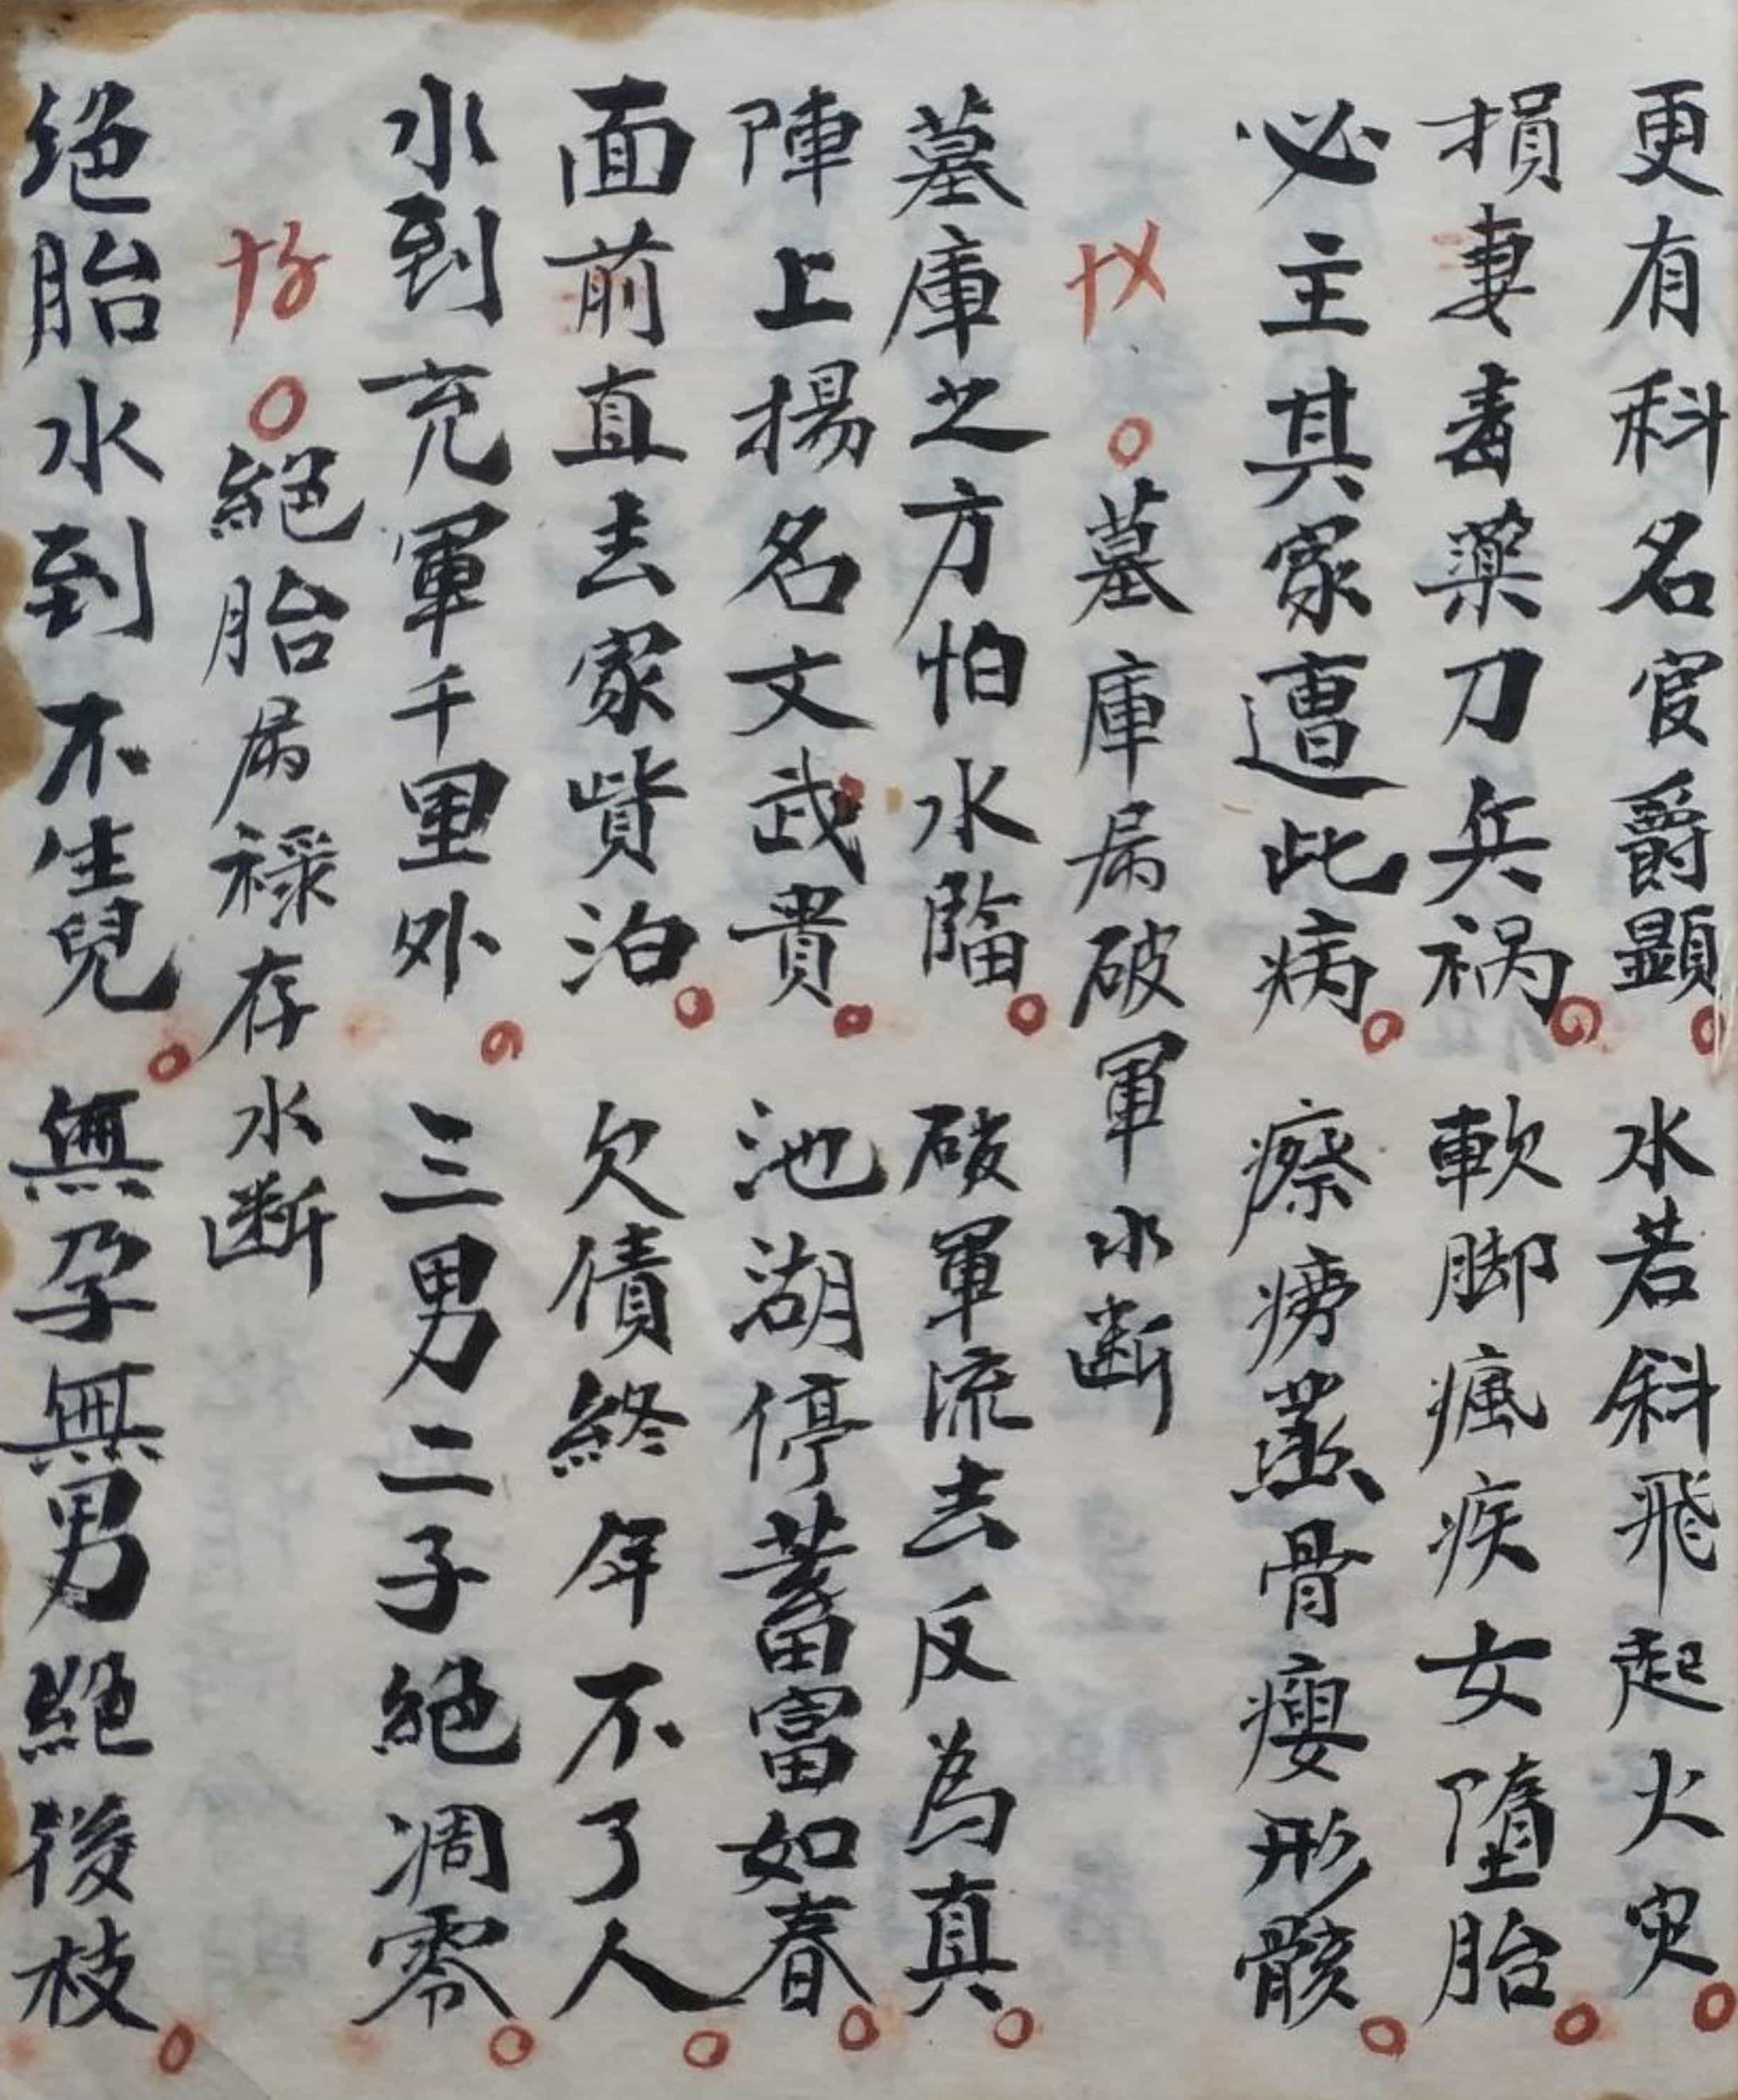 更有科名官爵顯。水若斜飛起火灾。
損妻毒藥刀兵祸。軟脚瘋疾女墮胎。
必主其家遭此病。瘵癆蒸骨瘦形骸。
墓庫屬破軍水斷
墓庫之方怕水臨。破軍流去反為真。
陣上揚名文武貴。池湖停蓄富如春。
面前直去家貲泊。欠債終年不了人。
水到充軍千里外。三男二子絕凋零。
絕胎屬祿存水斷
绝胎水到不生兒。無孕無男絕後枝。